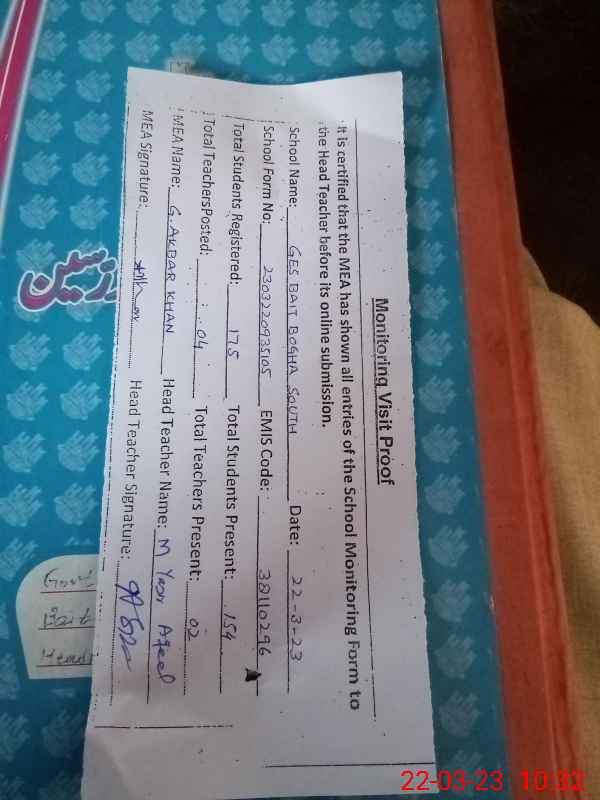 Monitoring Visit Proof
It is certified that the MEA has shown all entries of the School Monitoring Form to
the Head Teacher before its online submission.
School Name: GES BAIT BOGHA SOUTH Date: 22-3-23
School Form No: 2303220935105 EMIS Code: 38110296
Total Students Registered: 175 Total Students Present: 154
Total TeachersPosted: 04 Total Teachers Present: 02
MEA Name: G. AKBAR KHAN Head Teacher Name: M Aqeel
MEA Signature: Head Teacher Signature:
22-03-23 10:32